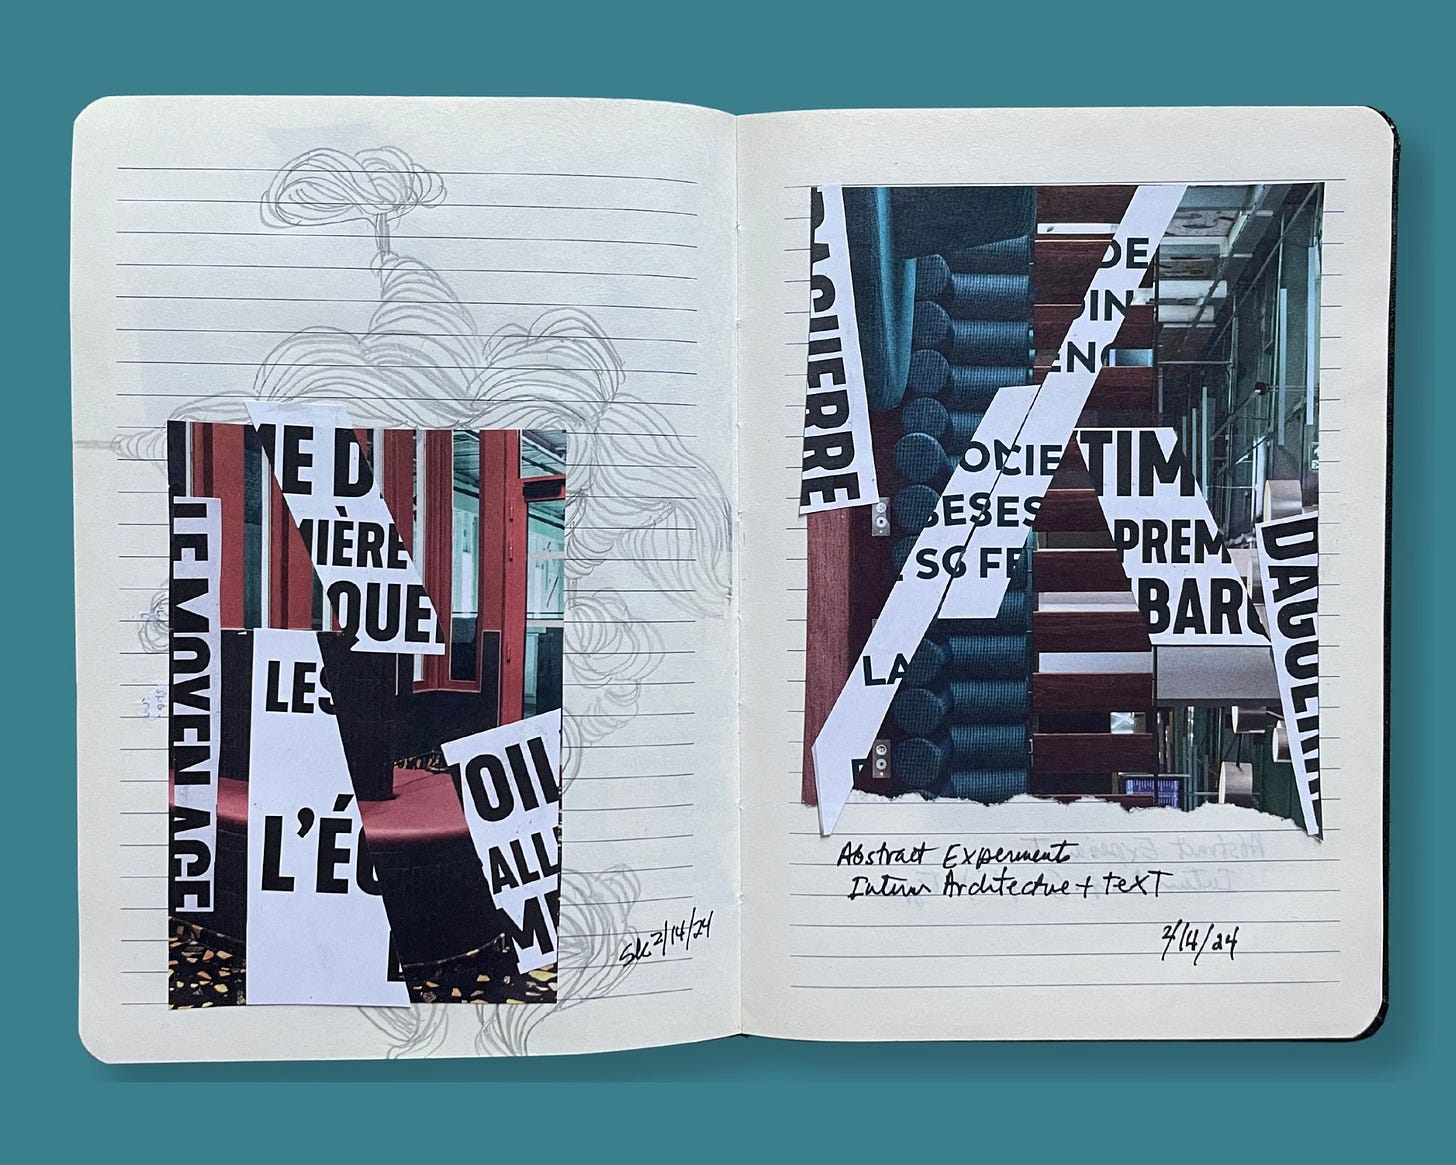 IE D
IÈRE
QUE
LE MOYEN AGE
LES
L'É
OIL
ALL
ME
SK 2/14/24
DAGUERRE
DE
DIN
ENC
OCIE
SESES
SG FE
LA
TIM
PREM
BARG
Abstract Experiment
Interior Architecture + TEXT
2/14/24